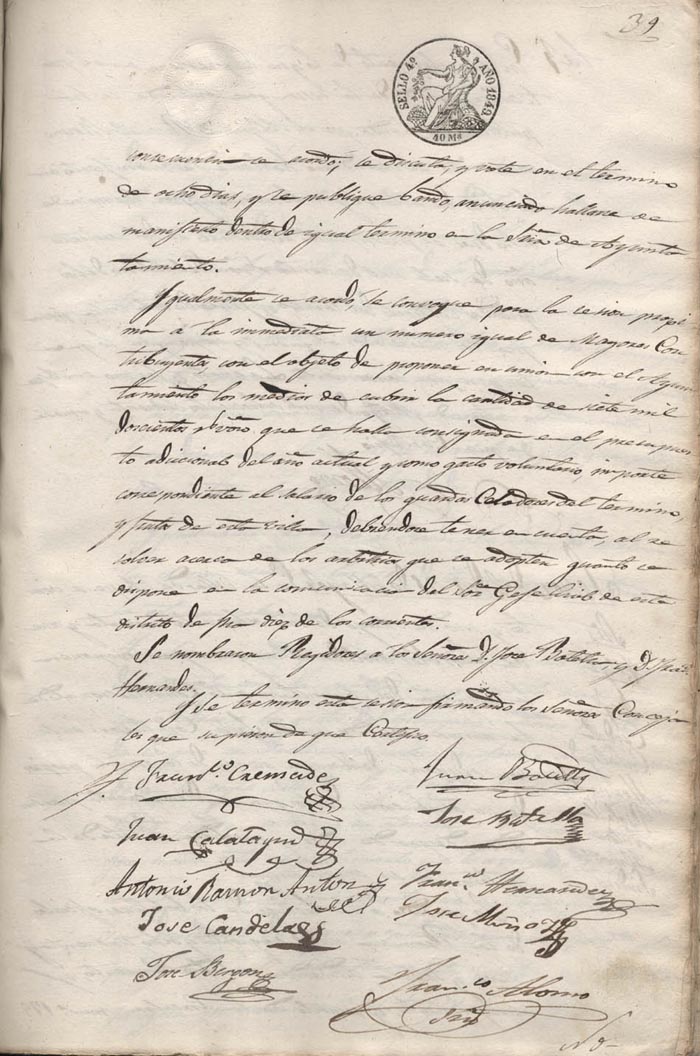 39
SELLO 4º AÑO 1849.
40 Ms
consecuencia se acordó; se discuta, y vote en el termino
de ocho dias, y se publique bando, anunciado hallarse de
manifiesto dentro de igual termino en la Sría. de Ayunta
tamiento.
Igualmente se acordó, se convoque para la sesion proxi
ma á la immediata un numero igual de Mayores Con
tribuyentes con el objeto de proponer en union con el Ayun
tamiento los medios de cubrir la cantidad de siete mil
doscientos rs. vón. que se halla consignada en el presupues
to adicional del año actual y como gasto voluntario, importe
correspondiente al salario de los guardas Celadores del termino,
y fruta de esta villa, debiendose tener en cuenta, al re
solver acerca de los arbitrios que se adopten quanto se
dispone en la comunicacion del Sor. Gefe Civil de este
distrito de fha diez de los corrientes.
Se nombraron Regidores a los Señores D. Jose Botella, y D. Fran.
Hernandes.
Y se termino esta sesion firmando los Señores Conceja
les que supieron de que Certifico.
Franco. Cremades
Juan Botella
Juan Calatayud
Jose Botella
Antonio Ramon Anton
Franco. Hernandez
Jose Candelas
Jose Muñoz
Jose Bergona
Franco Alonso
Srio